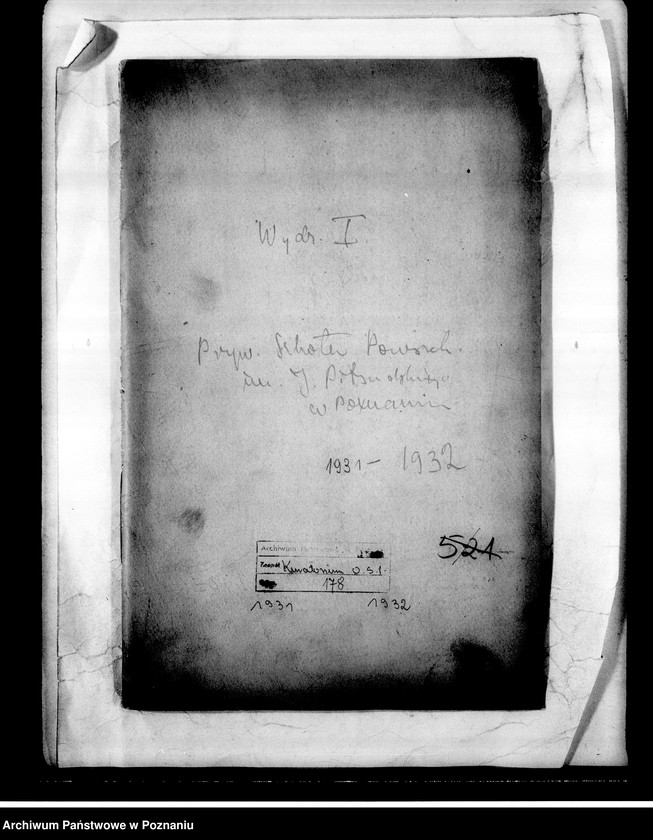 Wydr. I
Pryw. Szkoła Powszech.
im. J. Piłsudskiego
w Poznaniu
1931 – 1932
521
Archiwum
Zespół Kuratorium O.S.
178
1931 1932
Archiwum Państwowe w Poznaniu